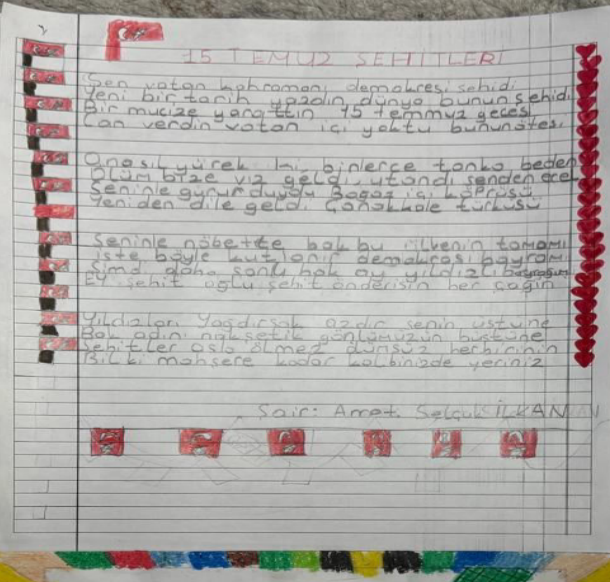 15 TEMUZ ŞEHİTLERİ
Sen vatan kahramanı demokresi şehidi
Yeni bir tarih yazdın dünya bunun şehidi
Bir mucize yarattın 15 temmuz gecesi
Can verdin vatan içi yoktu bununötesi
O nasıl yürek ki binlerce tanka beden
Ölüm bize vız geldi utandı senden ecel
Seninle gurur duydu Boğaz içi köprüsü
Yeniden dile geldi Çanakkale türküsü
Seninle nöbette bak bu ülkenin tamamı
İşte böyle kutlanır demokrasi bayramı
Şimdi daha şanlı bak ay yıldızlı bayrağım
Ey şehit oğlu şehit önderisin her çağın
Yıldızları Yağdırsak azdır senin üstüne
Bak adını nakşetik gönlümüzün büstüne
Şehitler asla ölmez herbirinin
Bil ki mahşere kadar kalbimizde yeriniz
Şair: Amet Selçuk İLKAN